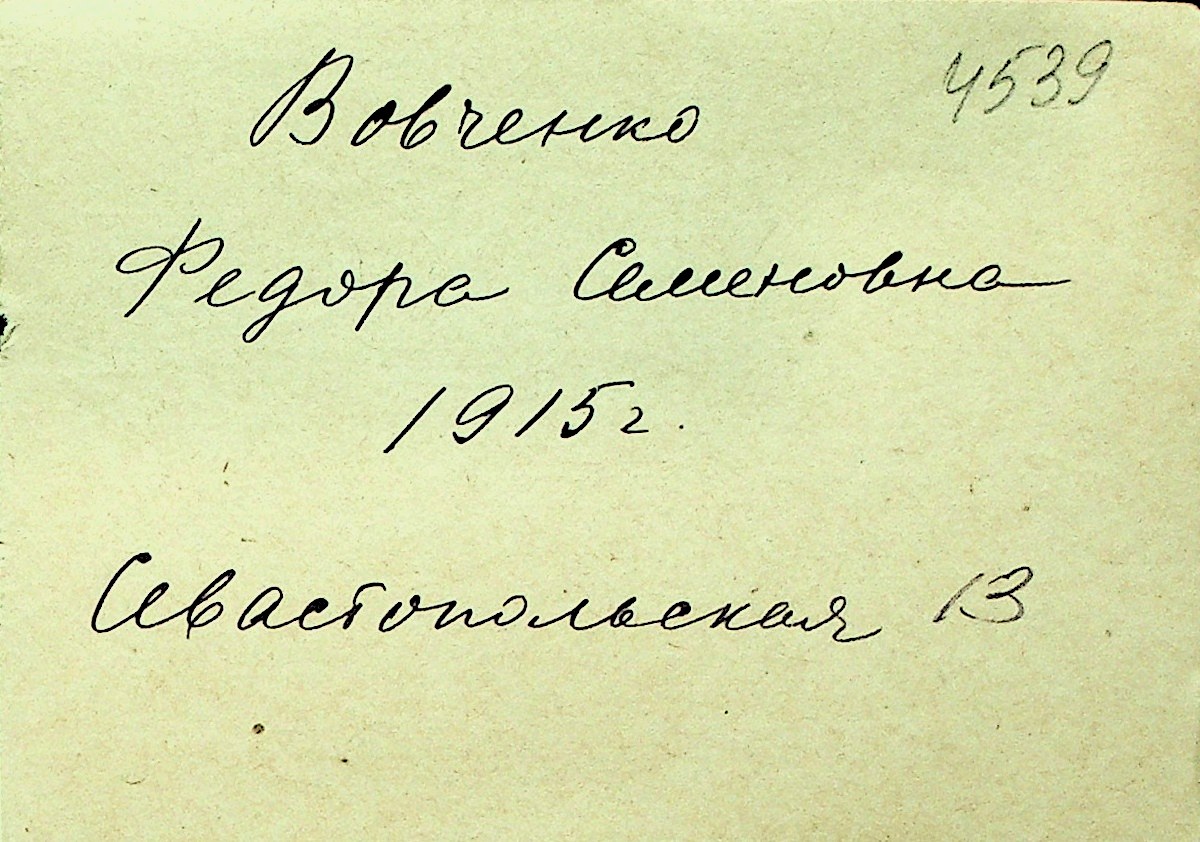 4539
Вовченко
Федора Семеновна
1915г.
Севастопольская 13